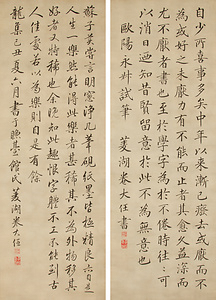 自少所喜事多矣中年以來漸已廢去或厭而不
為或好之未厭力有不能而止者其愈久益深而
尤不厭者書也至於學字為於不倦時往〻可
以消日迺知昔賢留意於此不為無意也
歐陽永叔試筆 菱湖卷大任書
蘇子美嘗言明窓淨几筆硯紙墨皆極精良亦自是
人生一樂然能得此樂者甚稀其不為外物移其
好者又特稀也余晚知此趣恨字體不工不能到古
人佳處若以為樂則自是有餘
龍集己丑夏六月書于 館 菱湖卷大任